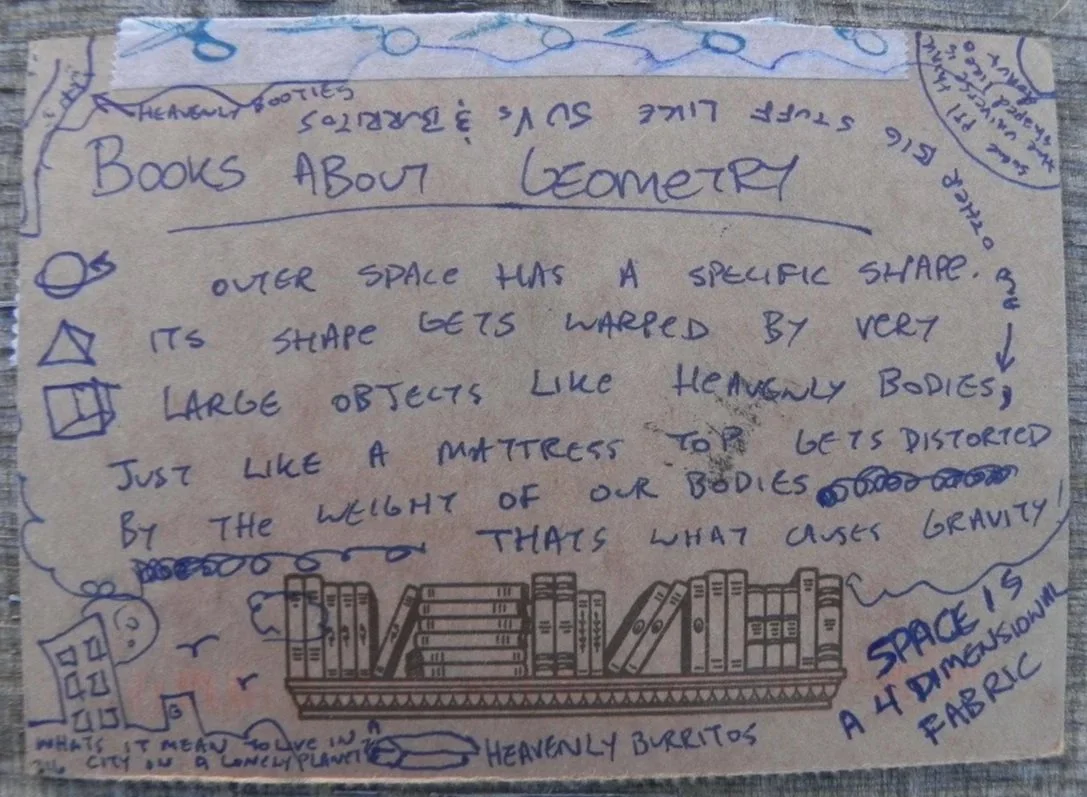 HEAVENLY BOOTIES
AND OTHER BIG STUFF LIKE SUVs & BURRITOS
SOME PPL THINK
THE UNIVERSE IS
SHAPED LIKE A
BOOKS ABOUT GEOMETRY
OUTER SPACE HAS A SPECIFIC SHAPE.
ITS SHAPE GETS WARPED BY VERY
LARGE OBJECTS LIKE HEAVENLY BODIES,
JUST LIKE A MATTRESS TOP GETS DISTORTED
BY THE WEIGHT OF OUR BODIES
THATS WHAT CAUSES GRAVITY!
SPACE IS
A 4 DIMENSIONAL
FABRIC
B
WHATS IT MEAN TO LIVE IN A
BIG CITY ON A LONELY PLANET
HEAVENLY BURRITOS